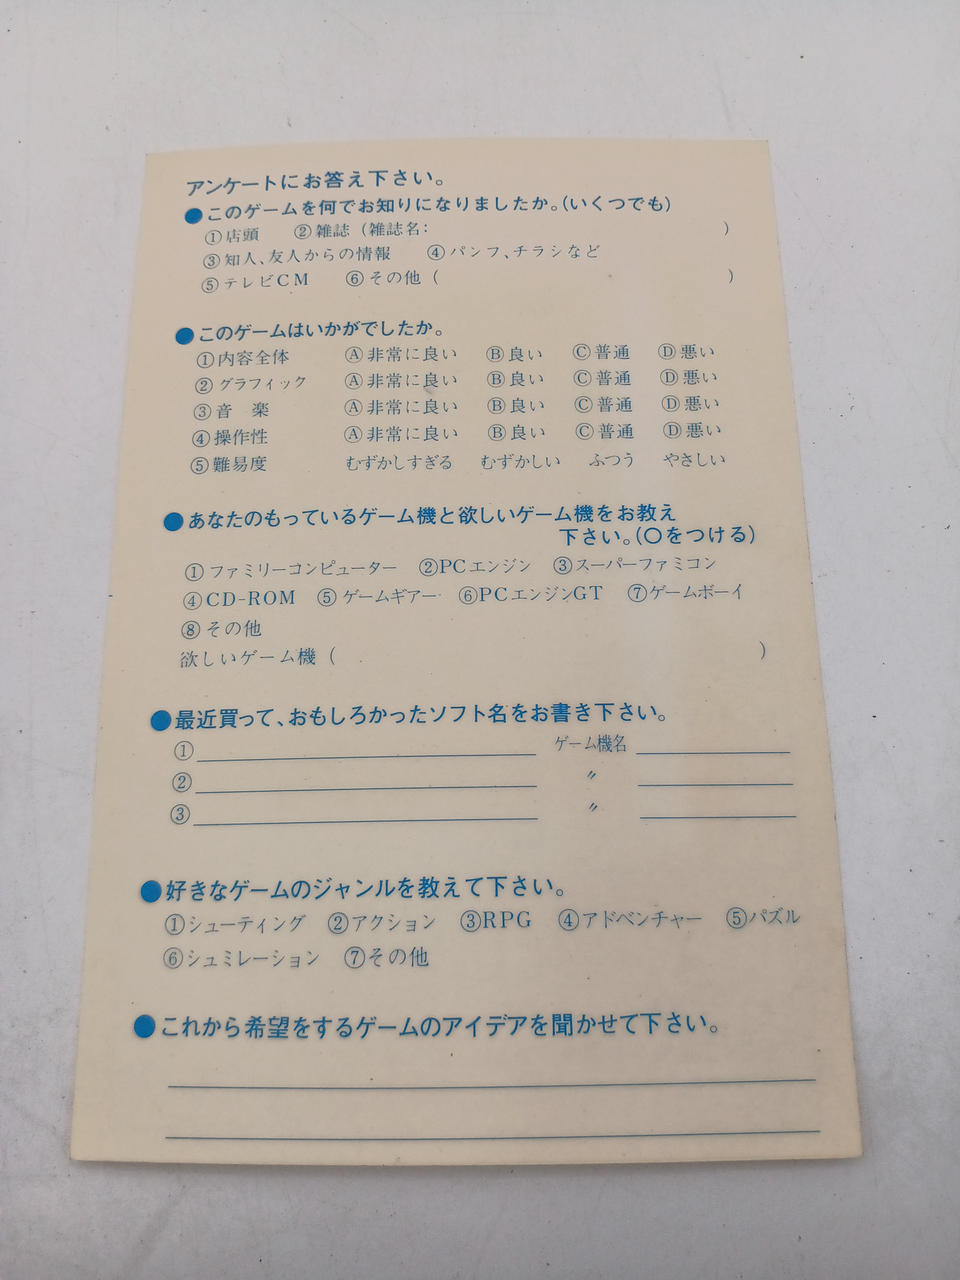 アンケートにお答え下さい。
●このゲームを何でお知りになりましたか。(いくつでも)
①店頭 ②雑誌(雑誌名: )
③知人、友人からの情報 ④パンフ、チラシなど
⑤テレビCM ⑥その他( )
●このゲームはいかがでしたか。
①内容全体 Ⓐ非常に良い Ⓑ良い Ⓒ普通 Ⓓ悪い
②グラフィック Ⓐ非常に良い Ⓑ良い Ⓒ普通 Ⓓ悪い
③音 楽 Ⓐ非常に良い Ⓑ良い Ⓒ普通 Ⓓ悪い
④操作性 Ⓐ非常に良い Ⓑ良い Ⓒ普通 Ⓓ悪い
⑤難易度 むずかしすぎる むずかしい ふつう やさしい
●あなたのもっているゲーム機と欲しいゲーム機をお教え
下さい。(○をつける)
①ファミリーコンピューター ②PCエンジン ③スーパーファミコン
④CD-ROM ⑤ゲームギアー ⑥PCエンジンGT ⑦ゲームボーイ
⑧その他
欲しいゲーム機( )
●最近買って、おもしろかったソフト名をお書き下さい。
① ゲーム機名
② 〃
③ 〃
●好きなゲームのジャンルを教えて下さい。
①シューティング ②アクション ③RPG ④アドベンチャー ⑤パズル
⑥シュミレーション ⑦その他
●これから希望をするゲームのアイデアを聞かせて下さい。